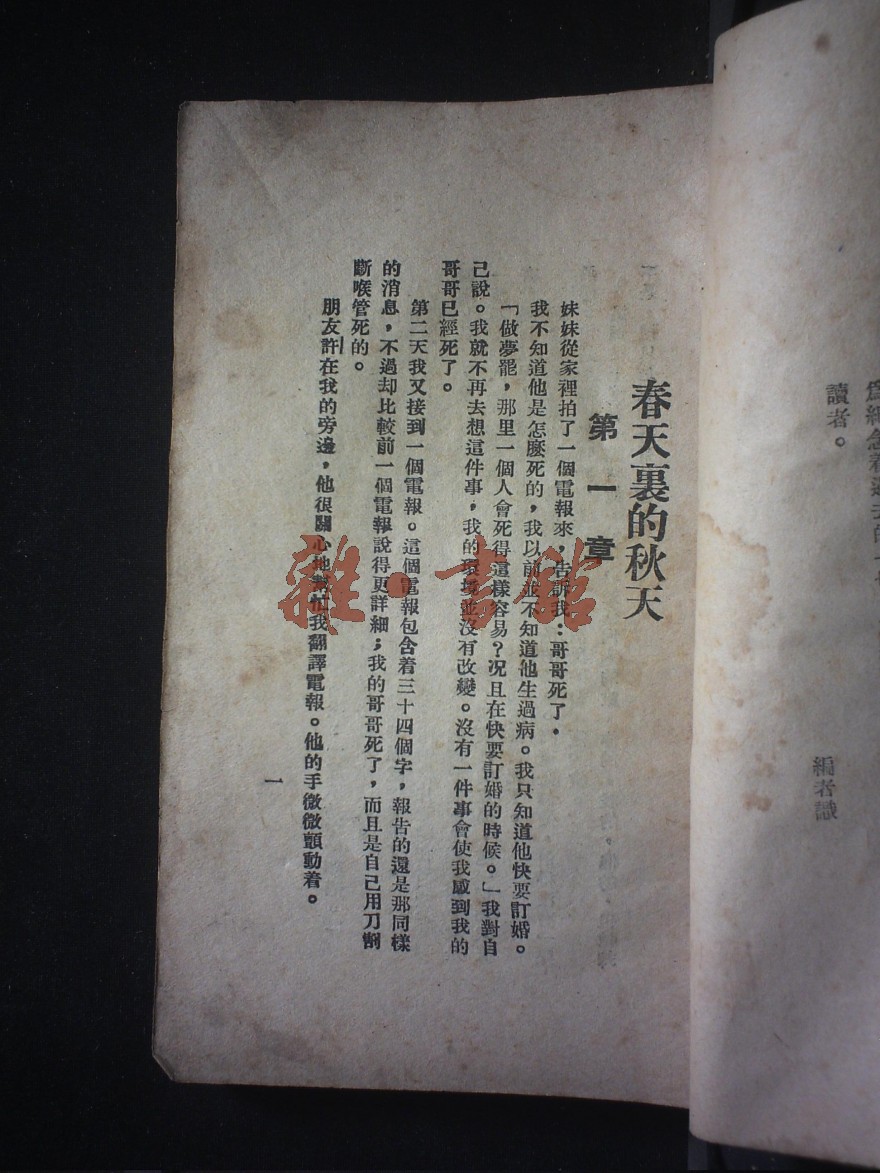 讀者。
編者識
春天裏的秋天
第一章
妹妹從家裡拍了一個電報來，告訴我：哥哥死了．
我不知道他是怎麼死的，我以前並不知道他生過病。我只知道他快要訂婚。
「做夢罷，那里一個人會死得這樣容易？况且在快要訂婚的時候。」我對自
己說。我就不再去想這件事，我的環境並沒有改變。沒有一件事會使我感到我的
哥哥已經死了。
第二天我又接到一個電報。這個電報包含着三十四個字，報告的還是那同樣
的消息，不過却比較前一個電報說得更詳細；我的哥哥死了，而且是自己用刀割
斷喉管死的。
朋友許在我的旁邊，他很關心地幫忙我翻譯電報。他的手微微顫動着。
一
雜·書館